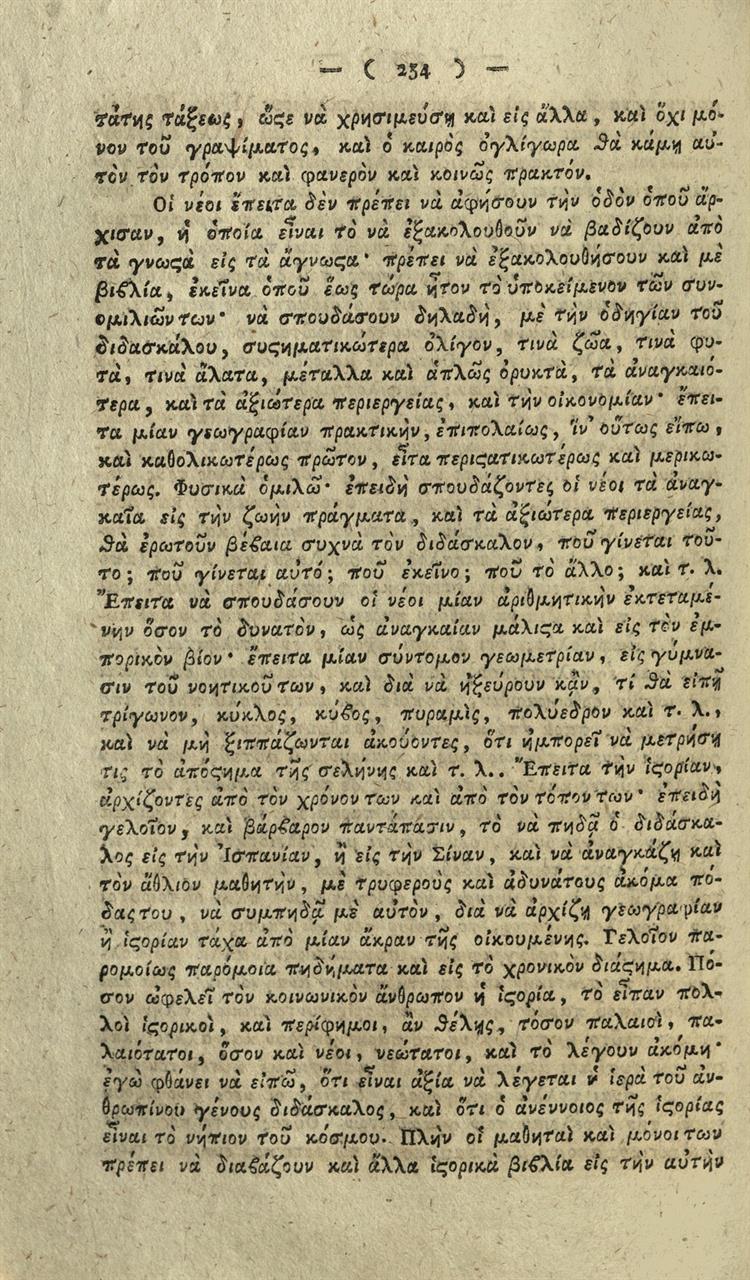 — ( 234 ) —
τάτης τάξεως, ὥςε νὰ χρησιμεύσῃ καὶ εἰς ἄλλα, καὶ ὄχι μό-
νον τοῦ γραψίματος, καὶ ὁ καιρὸς ὀγλίγωρα θὰ κάμῃ αὐ-
τὸν τὸν τρόπον καὶ φανερὸν καὶ κοινῶς πρακτόν.
Οἱ νέοι ἔπειτα δὲν πρέπει νὰ ἀφήσουν τὴν ὁδὸν ὁποῦ ἄρ-
χισαν, ἡ ὁποία εἶναι τὸ νὰ ἐξακολουθοῦν νὰ βαδίζουν ἀπὸ
τὰ γνωςὰ εἰς τὰ ἄγνωςα· πρέπει νὰ ἐξακολουθήσουν καὶ μὲ
βιβλία, ἐκεῖνα ὁποῦ ἕως τώρα ἦτον τὸ ὑποκείμενον τῶν συν-
ομιλιῶντων· νὰ σπουδάσουν δηλαδὴ, μὲ τὴν ὁδηγίαν τοῦ
διδασκάλου, συςηματικώτερα ὀλίγον, τινὰ ζῶα, τινὰ φυ-
τὰ, τινὰ ἅλατα, μέταλλα καὶ ἁπλῶς ὀρυκτὰ, τὰ ἀναγκαιό-
τερα, καὶ τὰ ἀξιώτερα περιεργείας, καὶ τὴν οἰκονομίαν· ἔπει-
τα μίαν γεωγραφίαν πρακτικὴν, ἐπιπολαίως, ἵν' οὕτως εἴπω,
καὶ καθολικωτέρως πρῶτον, εἶτα περιςατικωτέρως καὶ μερικω-
τέρως. Φυσικὰ ὁμιλῶ· ἐπειδὴ σπουδάζοντες οἱ νέοι τὰ ἀναγ-
καῖα εἰς τὴν ζωὴν πράγματα, καὶ τὰ ἀξιώτερα περιεργείας,
θὰ ἐρωτοῦν βέβαια συχνὰ τὸν διδάσκαλον, ποῦ γίνεται τοῦ-
το; ποῦ γίνεται αὐτό; ποῦ ἐκεῖνο; ποῦ τὸ ἄλλο; καὶ τ. λ.
Ἔπειτα νὰ σπουδάσουν οἱ νέοι μίαν ἀριθμητικὴν ἐκτεταμέ-
νην ὅσον τὸ δυνατὸν, ὡς ἀναγκαίαν μάλιςα καὶ εἰς τὸν ἐμ-
πορικὸν βίον· ἔπειτα μίαν σύντομον γεωμετρίαν, εἰς γύμνα-
σιν τοῦ νοητικοῦ των, καὶ διὰ νὰ ἠξεύρουν κᾂν, τί θὰ εἰπῇ
τρίγωνον, κύκλος, κύβος, πυραμὶς, πολύεδρον καὶ τ. λ.,
καὶ νὰ μὴ ξιππάζωνται ἀκούοντες, ὅτι ἠμπορεῖ νὰ μετρήσῃ
τις τὸ ἀπόςημα τῆς σελήνης καὶ τ. λ.. Ἔπειτα τὴν ἱςορίαν,
ἀρχίζοντες ἀπὸ τὸν χρόνον των καὶ ἀπὸ τὸν τόπον των· ἐπειδὴ
γελοῖον, καὶ βάρβαρον παντάπασιν, τὸ νὰ πηδᾷ ὁ διδάσκα-
λος εἰς τὴν Ἱσπανίαν, ἢ εἰς τὴν Σίναν, καὶ νὰ ἀναγκάζῃ καὶ
τὸν ἄθλιον μαθητὴν, μὲ τρυφεροὺς καὶ ἀδυνάτους ἀκόμα πό-
δας του, νὰ συμπηδᾷ μὲ αὐτὸν, διὰ νὰ ἀρχίζῃ γεωγραφίαν
ἢ ἱςορίαν τάχα ἀπὸ μίαν ἄκραν τῆς οἰκουμένης. Γελοῖον πα-
ρομοίως παρόμοια πηδήματα καὶ εἰς τὸ χρονικὸν διάςημα. Πό-
σον ὠφελεῖ τὸν κοινωνικὸν ἄνθρωπον ἡ ἱςορία, τὸ εἶπαν πολ-
λοὶ ἱςορικοὶ, καὶ περίφημοι, ἂν θέλῃς, τόσον παλαιοὶ, πα-
λαιότατοι, ὅσον καὶ νέοι, νεώτατοι, καὶ τὸ λέγουν ἀκόμη·
ἐγὼ φθάνει νὰ εἰπῶ, ὅτι εἶναι ἀξία νὰ λέγεται ἡ ἱερὰ τοῦ ἀν-
θρωπίνου γένους διδάσκαλος, καὶ ὅτι ὁ ἀνέννοιος τῆς ἱςορίας
εἶναι τὸ νήπιον τοῦ κόσμου. Πλὴν οἱ μαθηταὶ καὶ μόνοι των
πρέπει νὰ διαβάζουν καὶ ἄλλα ἱςορικὰ βιβλία εἰς τὴν αὐτὴν